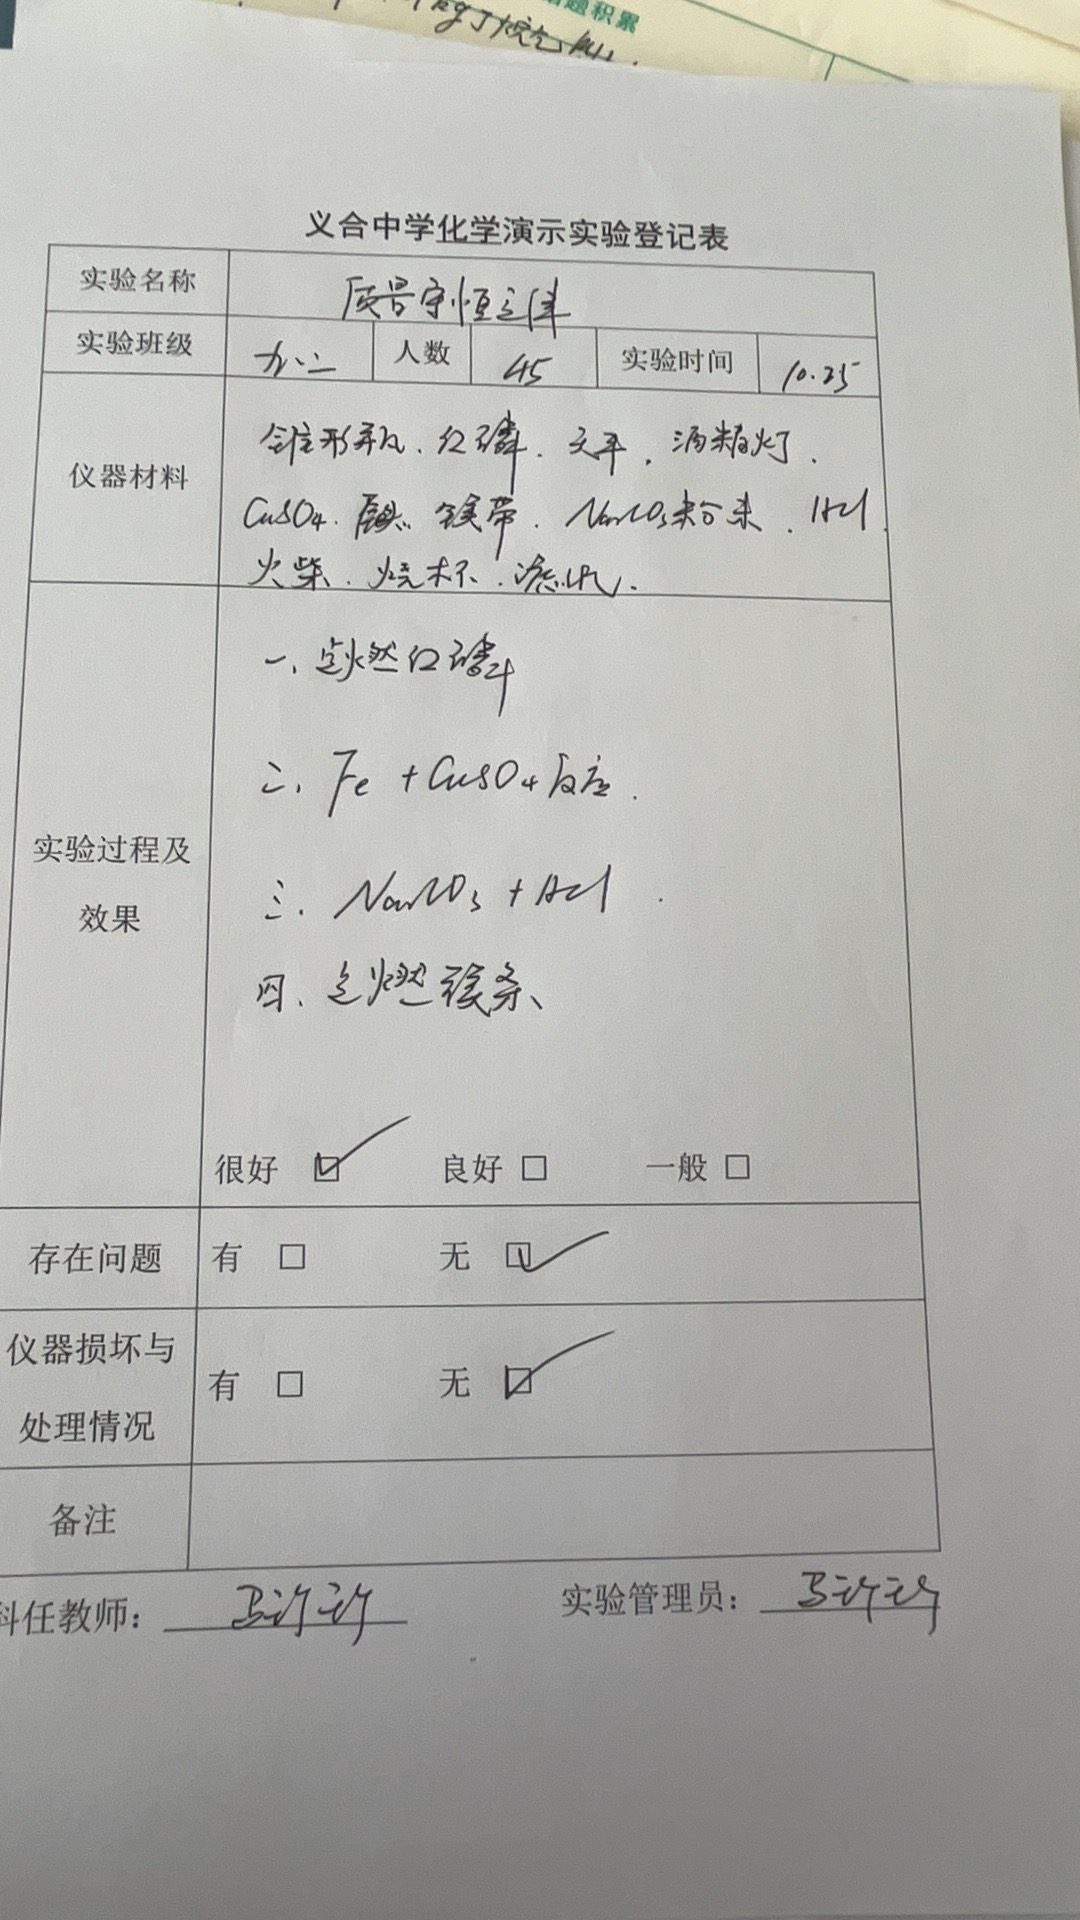 题积累
义合中学化学演示实验登记表
实验名称 质量守恒定律
实验班级 九.二 人数 45 实验时间 10.25
仪器材料
锥形瓶、红磷、天平、酒精灯、
CuSO4、镁带、Na2CO3粉末、HCl
火柴、烧杯、滤纸.
实验过程及
效果
一、点燃红磷
二、Fe + CuSO4反应.
三、Na2CO3 + HCl.
四、点燃镁条、
很好 ☑ 良好 □ 一般 □
存在问题 有 □ 无 ☑
仪器损坏与
处理情况
有 □ 无 ☑
备注
科任教师: 实验管理员: